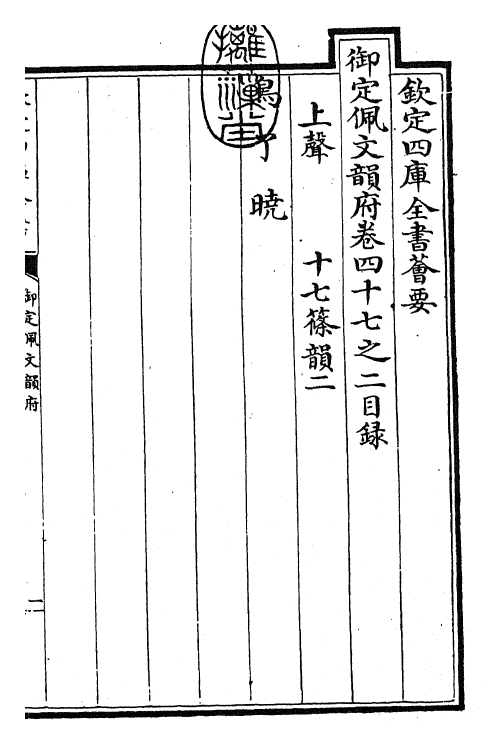 欽定四庫全書薈要
御定佩文韻府卷四十七之二目録
上聲　　十七篠韻二
鳥了曉
御定佩文韻府
二